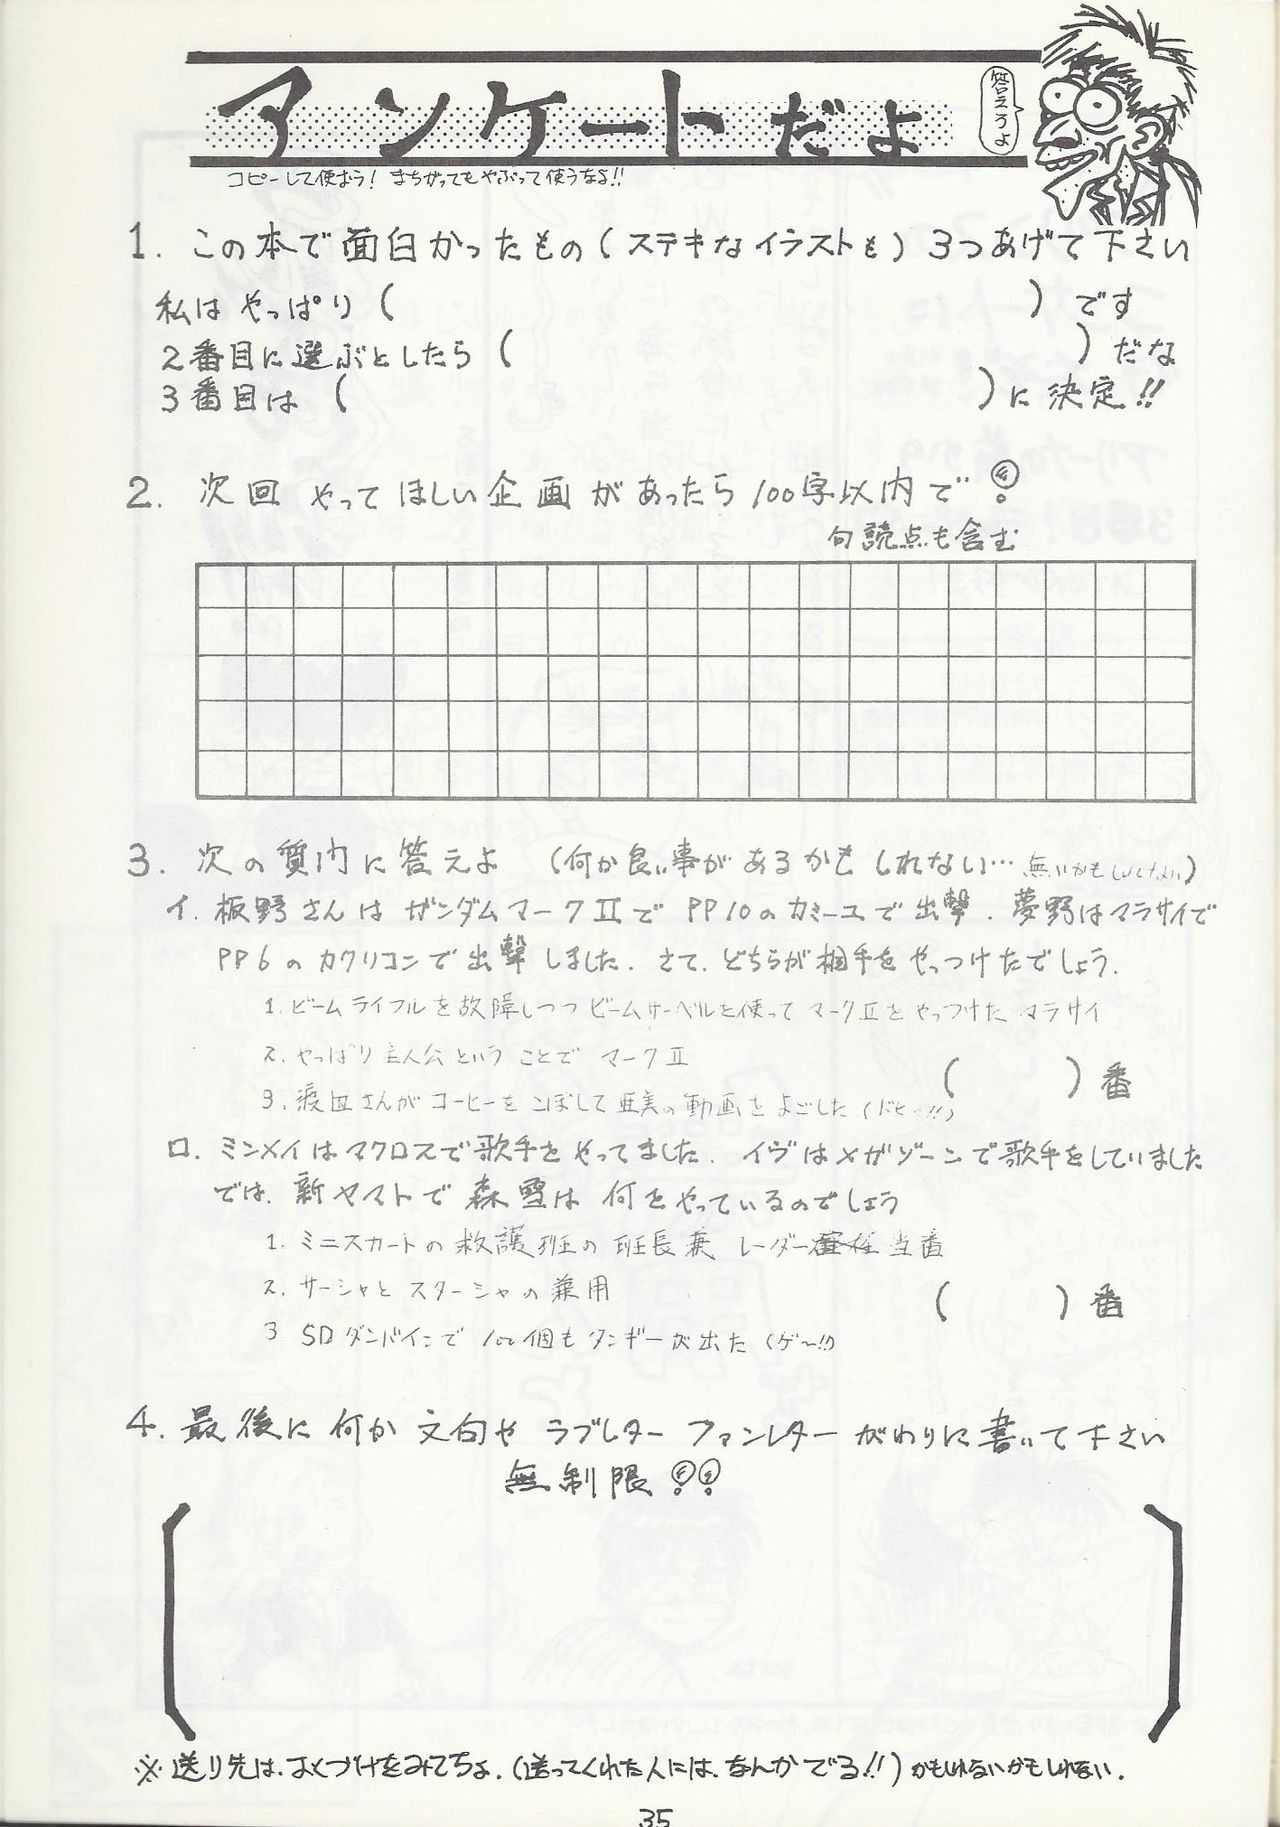 アンケートだよ
答えろよ
コピーして使おう! まちがってもやぶって使うなよ!!
1. この本で面白かったもの(ステキなイラストも)3つあげて下さい
私は やっぱり( )です
2番目に選ぶとしたら( )だな
3番目は( )に決定!!
2. 次回 やってほしい企画があったら100字以内で
句読点も含む
3. 次の質内に答えよ (何か良い事があるかもしれない… 無いかもしれない)
イ. 板野さんは ガンダムマークⅡで PP10のカミーユで出撃. 夢野はマラサイで
PP6のカクリコンで出撃しました. さて. どちらが相手をやっつけたでしょう.
1. ビームライフルを故障しつつビームサーベルを使ってマークⅡをやっつけたマラサイ
2. やっぱり主人公ということで マークⅡ
( )番
3. さんがコーヒーをこぼして亜美の動画をよごした(ドヒー!!)
ロ. ミンメイはマクロスで歌手をやってました. イヴはメガゾーンで歌手をしていました
では. 新ヤマトで 森雪は 何をやっているのでしょう
1. ミニスカートの救護班の班長兼 レーダー 当番
2. サーシャとスターシャの兼用
( )番
3 SDダンバインで 100個もダンギーが出た(ゲ〜!!)
4. 最後に何か文句や ラブレター ファンレターがわりに書いて下さい
無制限
※送り先は.おくづけをみてちょ.(送ってくれた人には.なんかでる!!)かもしれないかもしれない.
35